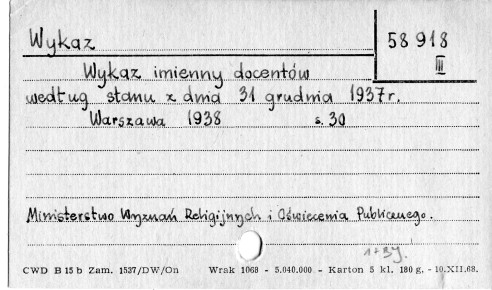 Wykaz
58 918
III
Wykaz imienny docentów
według stanu z dnia 31 grudnia 1937r.
Warszawa 1938 s. 30
Ministerstwo Wyznań Religijnych i Oświecenia Publicznego.
CWD B 15 b Zam. 1537/DW/On Wrak 1068 - 5.040.000 - Karton 5 kl. 180 g. - 10.XII.68.